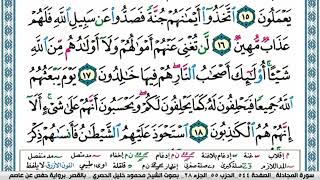 يَعْمَلُونَ ١٥ ٱتَّخَذُوٓا۟ أَيْمَٰنَهُمْ جُنَّةً فَصَدُّوا۟ عَن سَبِيلِ ٱللَّهِ فَلَهُمْ
عَذَابٌ مُّهِينٌ ١٦ لَّن تُغْنِىَ عَنْهُمْ أَمْوَٰلُهُمْ وَلَآ أَوْلَٰدُهُم مِّنَ ٱللَّهِ
شَيْـًٔا أُو۟لَٰٓئِكَ أَصْحَٰبُ ٱلنَّارِ هُمْ فِيهَا خَٰلِدُونَ ١٧ يَوْمَ يَبْعَثُهُمُ
ٱللَّهُ جَمِيعًا فَيَحْلِفُونَ لَهُۥ كَمَا يَحْلِفُونَ لَكُمْ وَيَحْسَبُونَ أَنَّهُمْ عَلَىٰ شَىْءٍ أَلَآ
إِنَّهُمْ هُمُ ٱلْكَٰذِبُونَ ١٨ ٱسْتَحْوَذَ عَلَيْهِمُ ٱلشَّيْطَٰنُ فَأَنسَىٰهُمْ ذِكْرَ
سورة المجادلة الصفحة ٥٤٤ الحزب ٥٥ الجزء ٢٨ بصوت الشيخ محمود خليل الحصري بالقصر برواية حفص عن عاصم